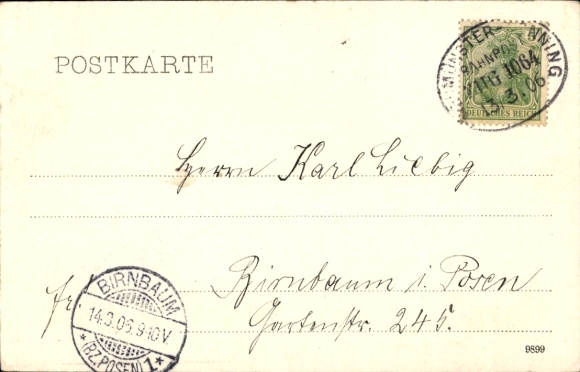 POSTKARTE
MÜNSTER-
BAHNPOST
ZUG 1064
13.3.06
DEUTSCHES REICH
Herrn Karl Liebig
Birnbaum i. Posen
Gartenstr. 245.
BIRNBAUM
14.3.06.9-10V
*(BZ.POSEN)1*
fr.
9899